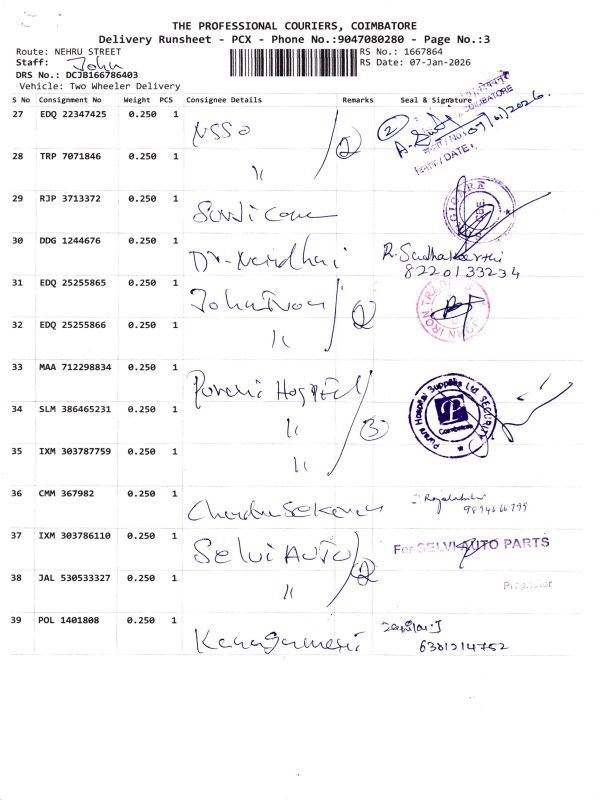 THE PROFESSIONAL COURIERS, COIMBATORE
Delivery Runsheet - PCX - Phone No.:9047080280 - Page No.:3
Route: NEHRU STREET
RS No.: 1667864
Staff: John
RS Date: 07-Jan-2026
DRS No.: DCJB166786403
Vehicle: Two Wheeler Delivery
S No Consignment No Weight PCS Consignee Details Remarks Seal & Signature
27 EDQ 22347425 0.250 1 NSSO 2
COIMBATORE
/DATE
28 TRP 7071846 0.250 1 "
29 RJP 3713372 0.250 1
30 DDG 1244676 0.250 1
8220133234
31 EDQ 25255865 0.250 1 2
32 EDQ 25255866 0.250 1 "
33 MAA 712298834 0.250 1 Hospital
Purani Hospital Supplies Ltd SECURITY
Coimbatore
34 SLM 386465231 0.250 1 " 3
35 IXM 303787759 0.250 1 "
36 CMM 367982 0.250 1
37 IXM 303786110 0.250 1 Selvi AUTO 2 For SELVI AUTO PARTS
38 JAL 530533327 0.250 1 " Proprietor
39 POL 1401808 0.250 1
6381214752